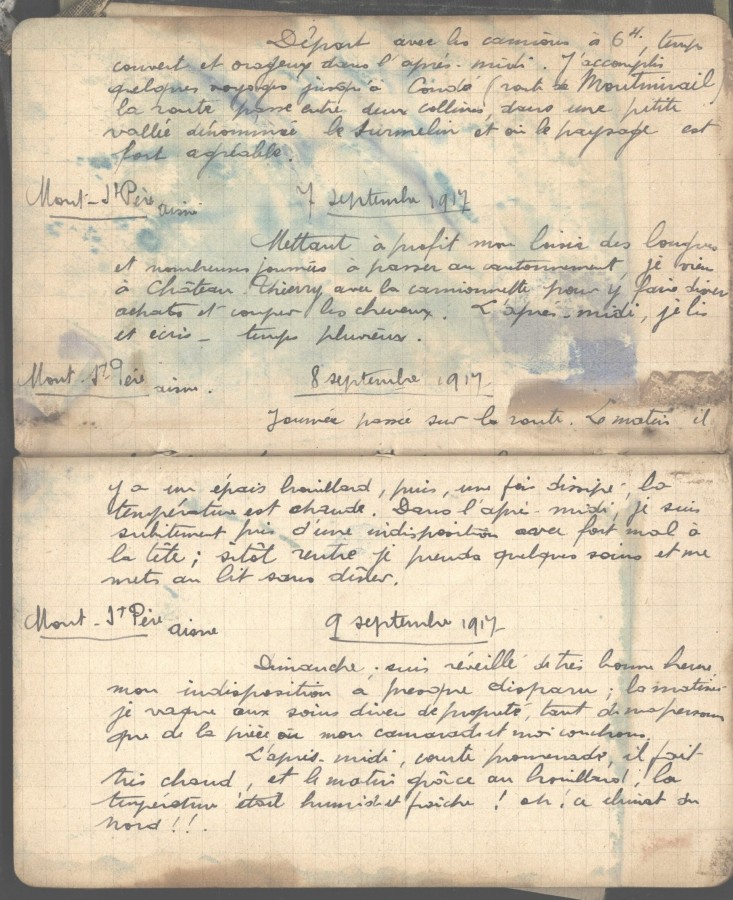 Départ avec les camions à 6H, temps
couvert et orageux dans l'après-midi. J'accomplis
quelques voyages jusqu'à Condé (route de Montmirail)
la route passe entre deux collines, dans une petite
vallée dénommée le Surmelin et où le paysage est
fort agréable.
Mont-St Père aisne 7 septembre 1917
Mettant à profit mon loisir des longues
et nombreuses journées à passer au cantonnement, je viens
à Château Thierry avec la camionnette pour y faire divers
achats et couper les cheveux. L'après-midi, je lis
et écris - temps pluvieux.
Mont-St Père aisne. 8 septembre 1917
Journée passée sur la route. Le matin il
y a un épais brouillard, puis, une fois dissipé, la
température est chaude. Dans l'après-midi, je suis
subitement pris d'une indisposition avec fort mal à
la tête ; sitôt rentré je prends quelques soins et me
mets au lit sans dîner.
Mont-St Père aisne 9 septembre 1917
Dimanche, suis réveillé de très bonne heure
mon indisposition à presque disparu ; la matinée
je vaque aux soins divers de propreté, tant de ma personne
que de la pièce où mon camarade et moi couchons.
L'après-midi, courte promenade, il fait
très chaud, et le matin grâce au brouillard, la
température était humide et fraîche ! ah ! ce climat du
Nord !!.